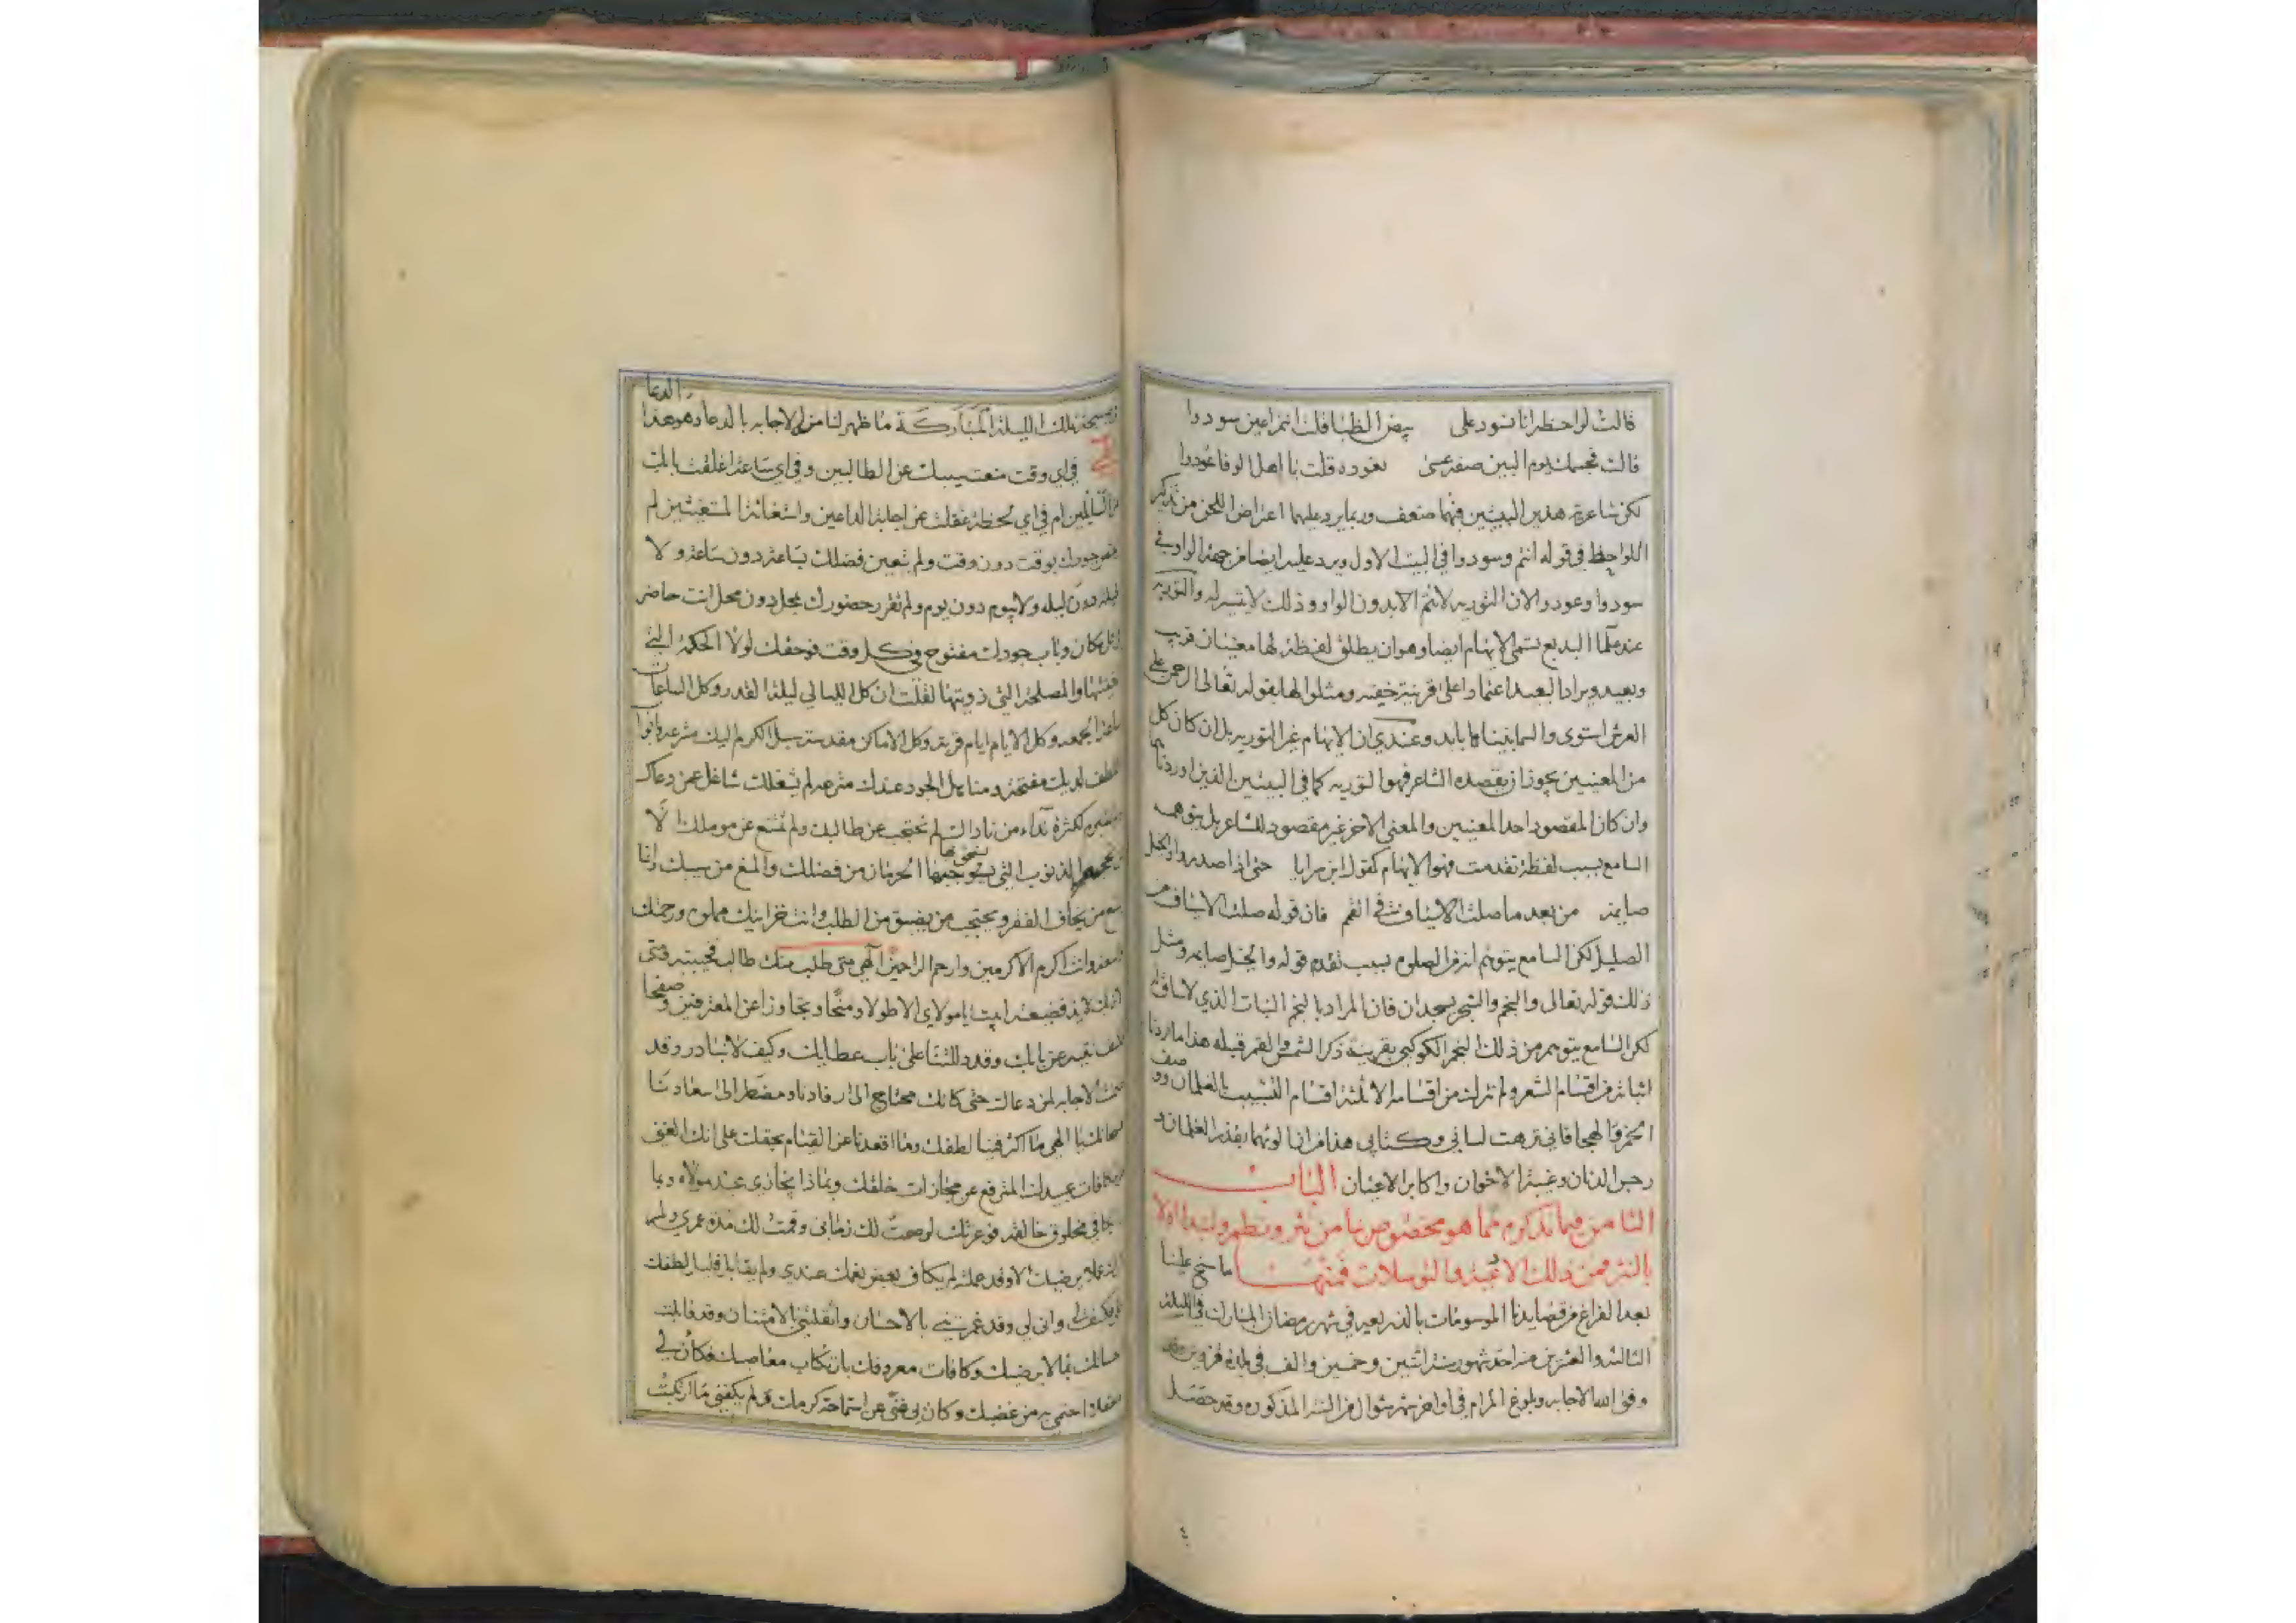 قالت لواحظه انا نسود على بيض الظبا قلت انتم اعين سودوا
قالت فجسمك يوم البين صفه عسى نعوده قلت يا اهل الوفا عودوا
لكن شاعرية هذين البيتين فيهما ضعف وربما يرد عليهما اعتراض اللحن من تذكير
اللواحظ في قوله انتم وسودوا في البيت الاول ويرد عليه ايضا من جهة الواو في
سودوا وعودوا لان التوريه لا تتم الا بدون الواو وذلك لا يتيسر له والتوريه
عند علما البديع تسمى الايهام ايضا وهو ان يطلق لفظة لها معنيان قريب
وبعيد ويراد البعيد اعتمادا على قرينة خفيه ومثلوا لها بقوله تعالى الرحمن على
العرش استوى والسما بنيناها بايد وعندي ان الايهام غير التوريه بل ان كان كل
من المعنيين يجوز ان يقصده الشاعر فهو التوريه كما في البيتين الذين اوردناهما
وان كان المقصود احد المعنيين والمعنى الاخر غير مقصود للشاعر بل يتوهمه
السامع بسبب لفظة تقدمت فهو الايهام كقول ابن سرايا حتى اذا صدروا والخيل
صايمة من بعد ما صلت الاسياف في القمم فان قوله صلت الاسياف من
الصليل لكن السامع يتوهم انه من الصلوه بسبب تقدم قوله والخيل صايمه ومثل
ذلك قوله تعالى والنجم والشجر يسجدان فان المراد بالنجم النبات الذي لا ساق له
لكن السامع يتوهم من ذلك النجم الكوكبي بقرينة ذكر الشمس والقمر قبله هذا ما اردنا
اثباته من اقسام الشعر ولم نترك من اقسامه الا ثلثة اقسام التشبيب بالغلمان ووصف
الخمر والهجا فاني نزهت لساني وكتابي هذا من انا لوثهما بقذر الغلمان و
رجس الدنان وغيبة الاخوان واكابر الاعيان الباب
الثامن فيما نذكره مما هو مخصوص بنا من نثر ونظم ولنبدا اولا
بالنثر فمن ذلك الادعية والتوسلات فمنها ما سنح علينا
بعد الفراغ من قصايدنا الموسومات بالذريعه في شهر رمضان المبارك في الليلة
الثالثة والعشرين منه احد شهور سنة اثنين وخمسين والف في بلدة قزوين
وفق الله الاجابه وبلوغ المرام في اواخر شهر شوال من السنة المذكوره وقد حصل
الدعا
تلك الليلة المباركة ما ظهر لنا من الاجابه بالدعا وهو هذا
في اي وقت منعت سيبك عن الطالبين وفي اي ساعة اغلقت بابك
ام في اي لحظة غفلت عن اجابة الداعين واستغاثة المستغيثين لم
جودك بوقت دون وقت ولم تعين فضلك بساعة دون ساعة ولا
ليلة دون ليله ولا بيوم دون يوم ولم تقرر حضورك بمحل دون محل انت حاضر
مكان وباب جودك مفتوح في كل وقت فوحقك لولا الحكمة التي
والمصلحة التي لقلت ان كل الليالي ليلة القدر وكل الساعات
ساعة الجمعه وكل الايام ايام قربة وكل الاماكن مقدسة سبل الكرم اليك مشرعه وابواب
اللطف لديك مفتحة ومناهل الجود عندك مترعه لم يشغلك شاغل عن دعاك
لكثرة نداء من ناداك لم تحتجب عن طالبك ولم تمتنع عن موملك الا
الذنوب التي يستوجب بها الحرمان من فضلك والمنع من سيبك وانما
يمنع من يخاف الفقر ويحتجب من يضيق من الطلب وانت خزاينك مملوه ورحمتك
وانت اكرم الاكرمين وارحم الراحمين الهي متى طلب منك طالب فخيبته ومتى
لاذ فضيعته ابيت يا مولاي الا طولا ومنحا وتجاوزا عن المعترفين وصفحا
عن بابك وقد دللتنا على باب عطاياك وكيف لا نبادر وقد
ضمنت الاجابه لمن دعاك حتى كانك محتاج الى ارفادنا ومضطر الى اسعادنا
سبحانك يا الهي ما اكثر فينا لطفك وما اقعدنا عن القيام بحقك على انك الغني
عن مكافات عبيدك المترفع عن مجازات خلقك وبماذا يجازي عبد مولاه وبما
يكافي مخلوق خالقه فوعزتك لو صمت لك زماني وقمت لك مدة عمري ولم
عملا يرضيك الا وقد عملته لم يكاف بعض نعمك عندي ولم يقابل قليل لطفك
فكيف لي واني لي وقد غمرتني بالاحسان واثقلتني بالامتنان وقد قابلت
بما لا يرضيك وكافات معروفك بارتكاب معاصيك فكان لي
معاذا احتمي به من غضبك وكان لي غنى عن استماحة كرمك ولم يكفني ما ارتكبت